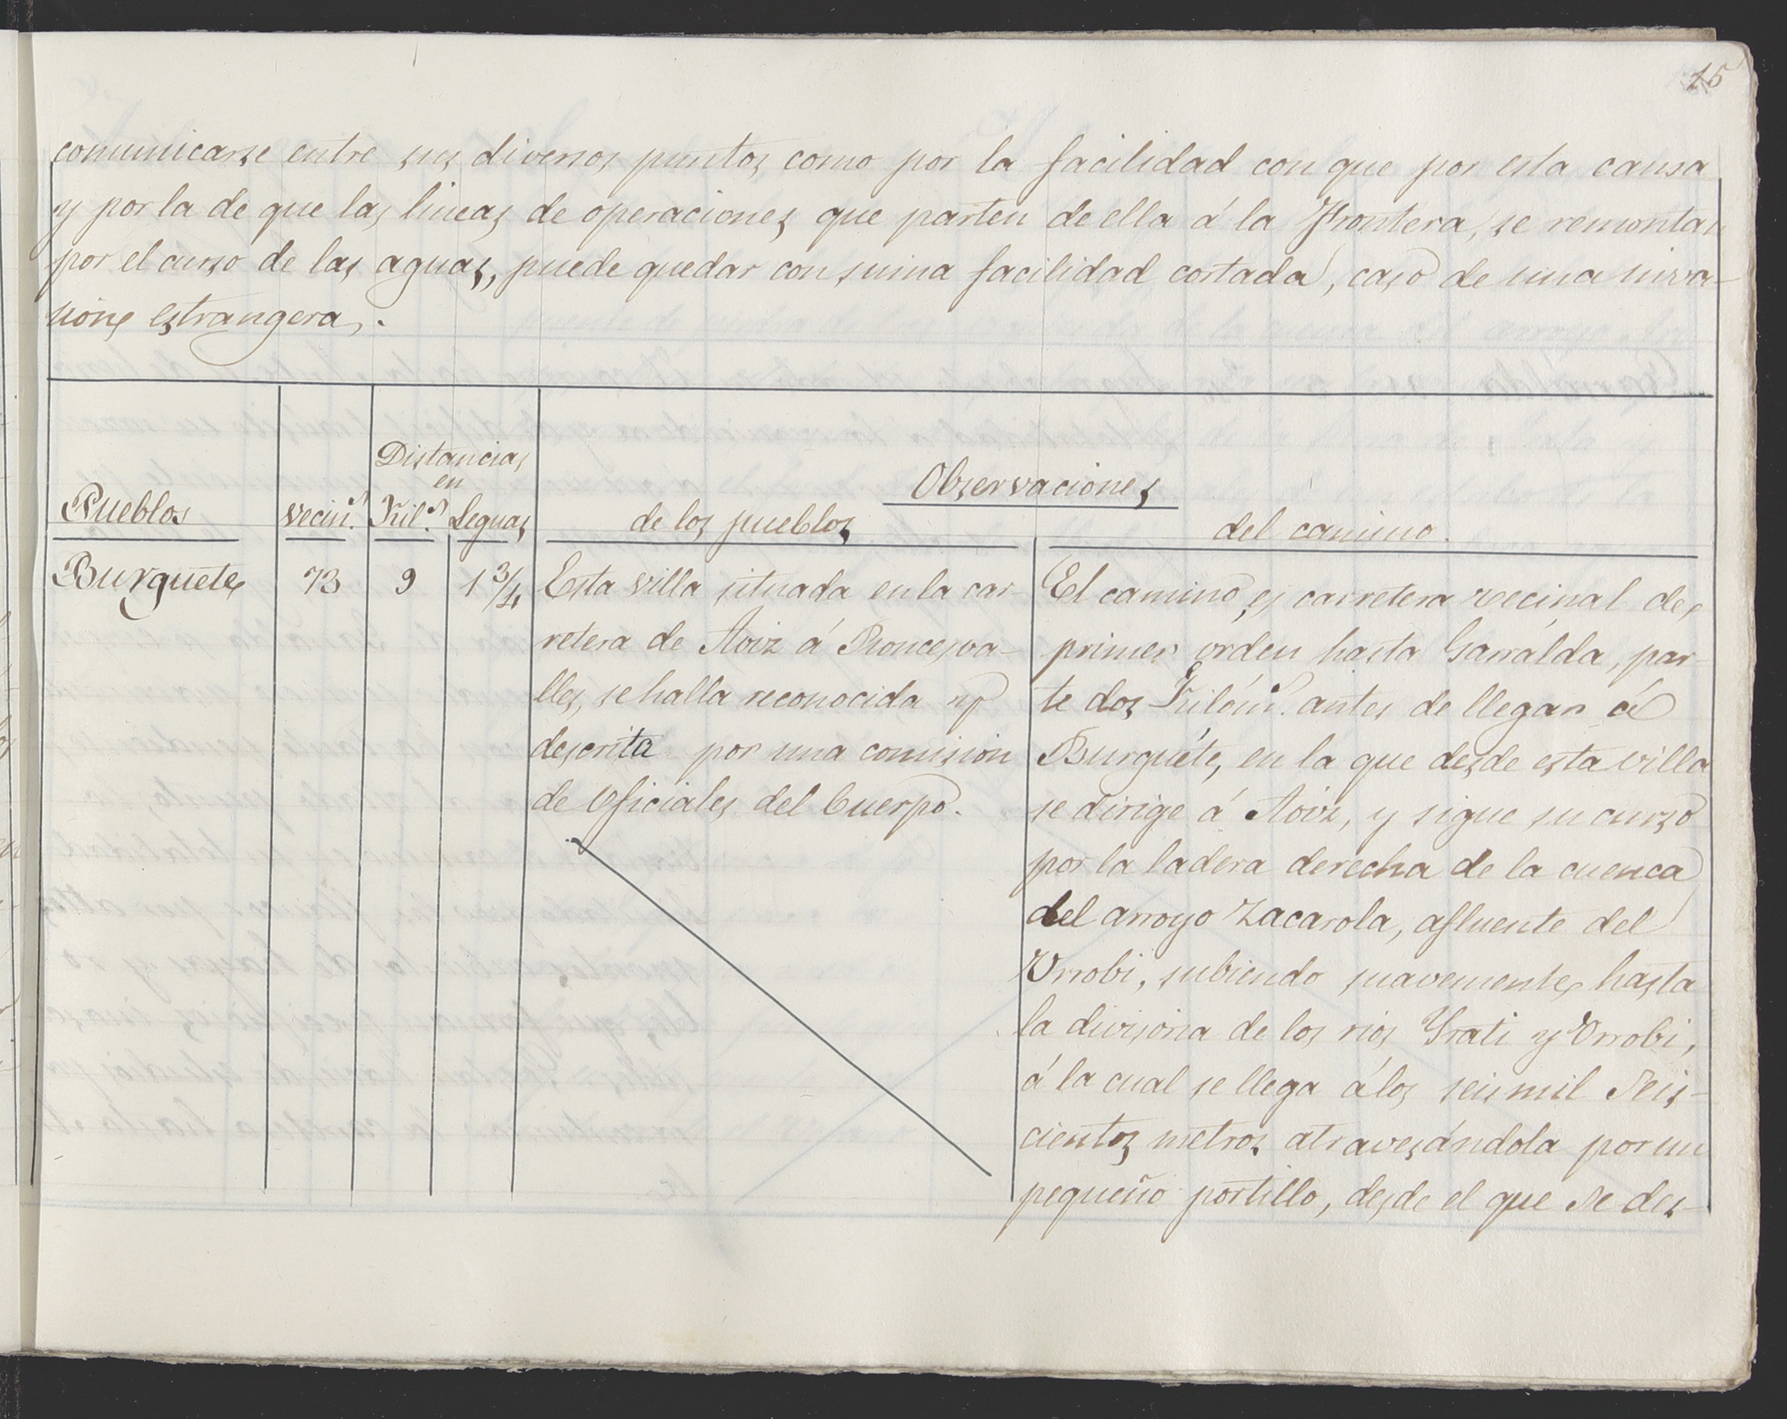 15
comunicarse entre sus diversos puntos como por la facilidad con que por esta causa
y por la de que las lineas de operaciones que parten de ella á la Frontera, se remontan
por el curso de las aguas, puede quedar con suma facilidad cortada, caso de una inva-
sion estrangera.
Distancias
en
Observaciones
Pueblos vecin.s Kil.s Leguas de los pueblos del camino.
Burguete 73 9 1 3/4
Esta villa situada en la car-
retera de Aoiz á Roncesva-
lles, se halla reconocida y
descrita por una comision
de Oficiales del Cuerpo.
El camino es carretera vecinal de
primer orden hasta Garralda, par-
te dos Kilóm.s antes de llegar á
Burguete, en la que desde esta villa
se dirige á Aoiz, y sigue su curso
por la ladera derecha de la cuenca
del arroyo Zacarola, afluente del
Urrobi, subiendo suavemente hasta
la divisoria de los rios Yrati y Urrobi,
á la cual se llega á los seis mil seis-
cientos metros atravesándola por un
pequeño portillo, desde el que se des-